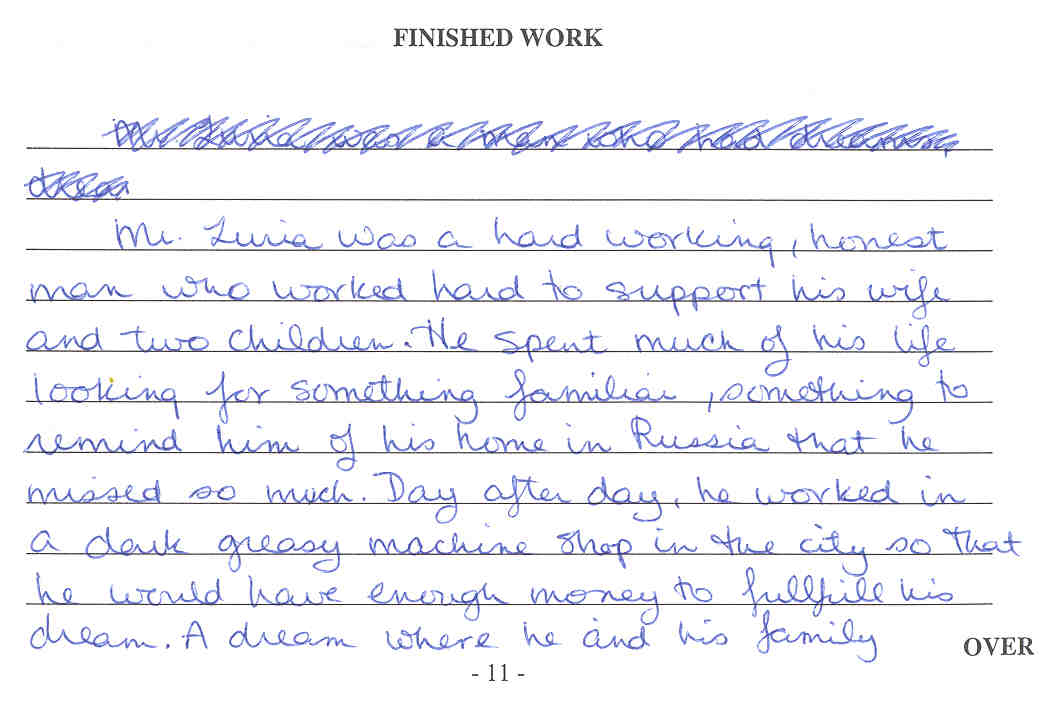 FINISHED WORK
Mr. Luria was a hard working, honest
man who worked hard to support his wife
and two children. He spent much of his life
looking for something familiar, something to
remind him of his home in Russia that he
missed so much. Day after day, he worked in
a dark greasy machine shop in the city so that
he would have enough money to fullfill his
dream. A dream where he and his family
OVER
- 11 -